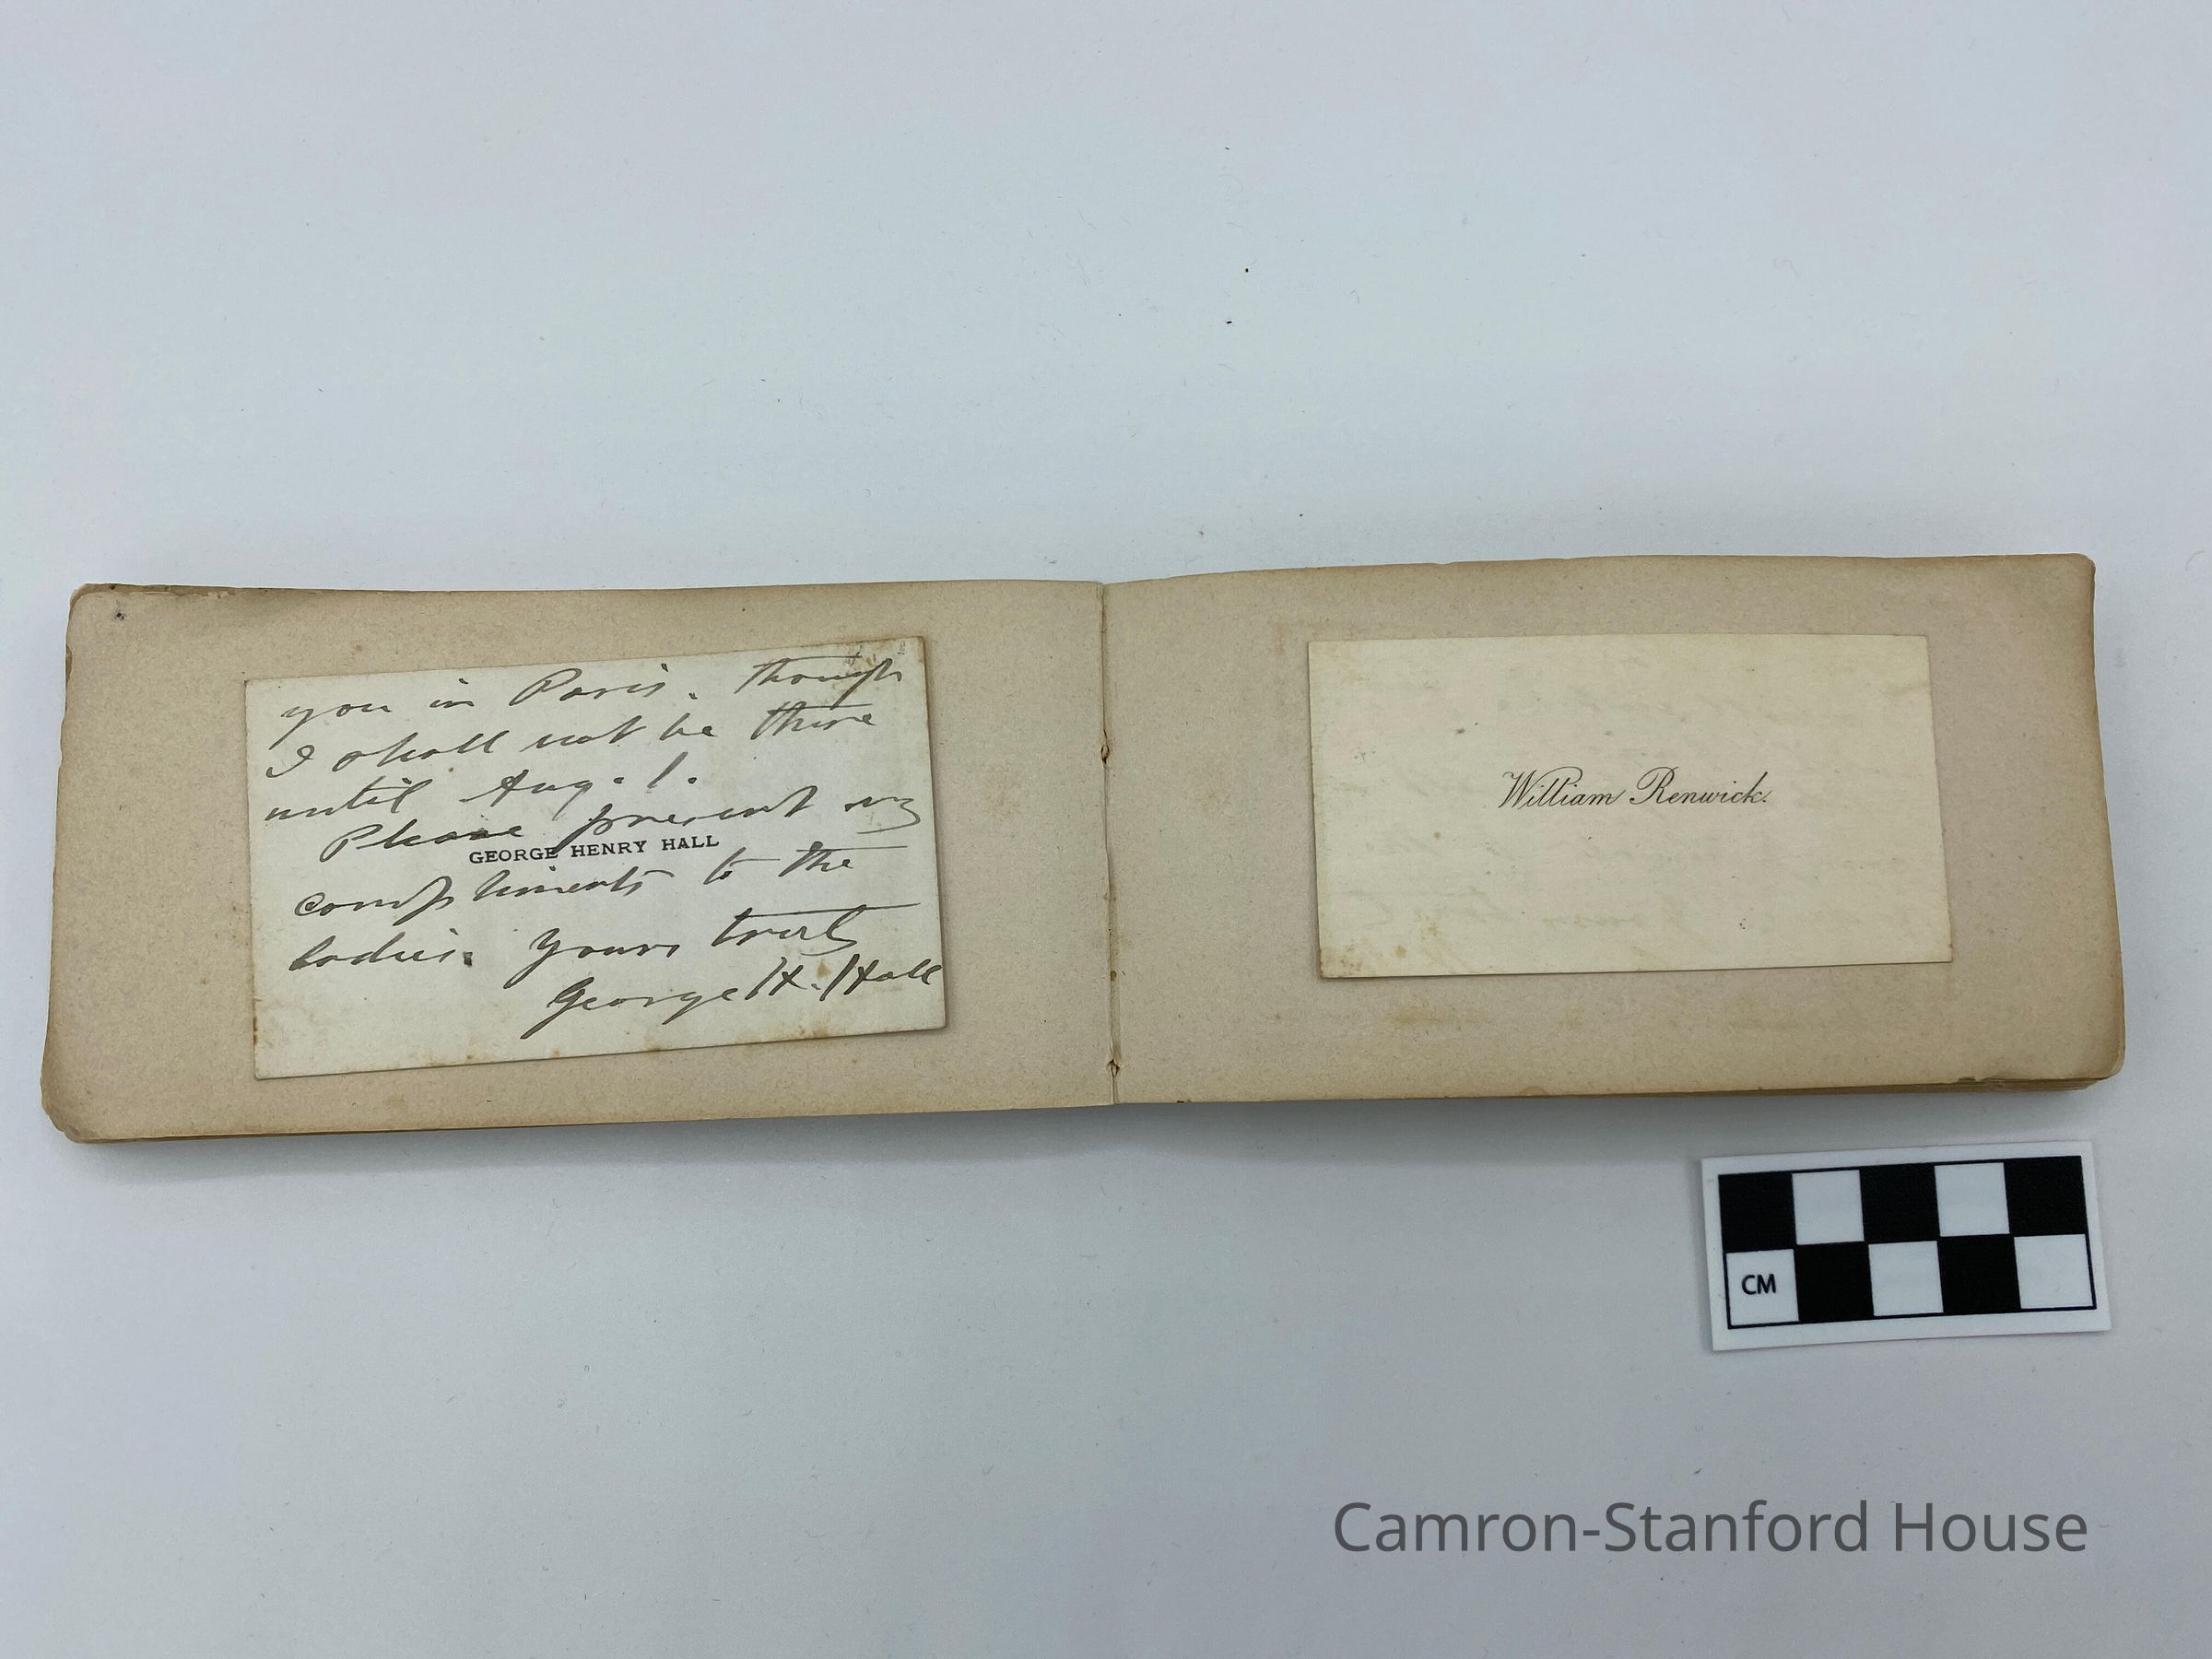 you in Paris. though
I shall not be there
until Aug. 1.
Please present my
GEORGE HENRY HALL
compliments to the
ladies. Yours truly
George H. Hall
William Renwick.
CM
Camron-Stanford House